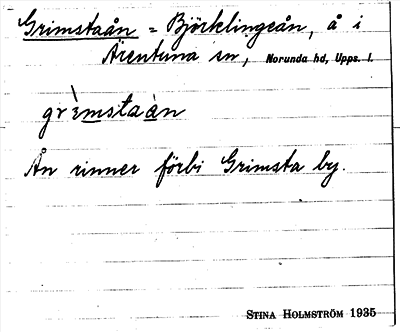 Grimstaån = Björklingeån, å i
Ärentuna sn, Norunda hd, Upps. l.
grìmstaàn
Ån rinner förbi Grimsta by.
STINA HOLMSTRÖM 1935